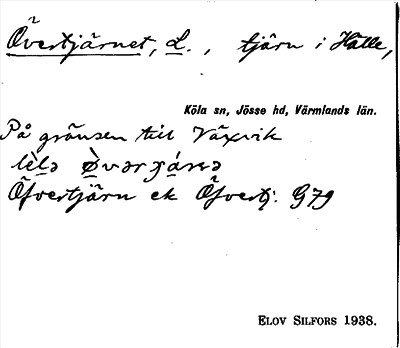 Övertjärnet, L., tjärn i Hälle,
Köla sn, Jösse hd, Värmlands län.
På gränsen till Växvik
lèlə
Öfvertjärn ek Öfvertj: G79
ELOV SILFORS 1938.